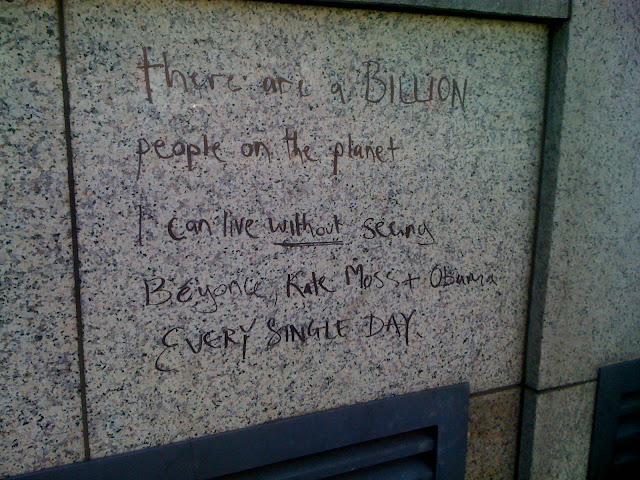 there are a BILLION
people on the planet
I can live without seeing
Beyonce, Kate Moss + Obama
EVERY SINGLE DAY.